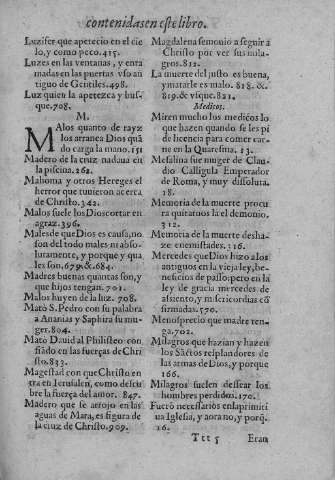 contenidas en este libro.
Luzifer que apetecio en el cie
lo, y como peco. 415.
Luzes en las ventanas, y enra
madas en las puertas vso an
tiguo de Gentiles. 498.
Luz quien la apetezca y bus-
que. 708.
M.
MAlos quanto de rayz
los arranea Dios quã
do carga la mano. 151
Madero de la cruz nadaua en
la piscina. 262.
Mahoma y otros Hereges el
herror que tuuieron acerca
de Christo. 342.
Malos suele los Dios cortar en
agraz. 396.
Males de que Dios es causa, no
son del todo males ni abso-
luramente, y porque y qua
les son, 679. &. 684.
Madres buenas quantas son, y
que hijos tengan. 701.
Malos huyen de la luz. 708.
Mato S. Pedro con su palabra
a Ananias y Saphira su mu-
ger. 804.
Mato Dauid al Philisteo con
fiãdo en las fuerças de Chri
sto. 833.
Magestad con que Christo en
tra en Ierusalen, como descu
bre la fuerça del amor. 847.
Madero que se arrojo en las
aguas de Mara, es figura de
la cruz de Christo. 909.
Magdalena se monio a seguir a
Christo por ver sus mila-
gros. 812.
La muerte del justo es buena,
y matarle es malo. 818. &.
819. & vsque. 821.
Medicos.
Miren mucho los medicos lo
que hazen quando se les pi
de licencia para comer car-
ne en la Quaresma. 13.
Mesalina fue muger de Clau-
dio Calligula Emperador
de Roma, y muy dissoluta.
18.
Memoria de la muerte procu
ra quitarnos la el demonio.
312.
Memoria de la muerte desha-
ze enemistades. 316.
Mercedes que Dios hizo a los
antiguos en la vieja ley, be-
neficios de passo: pero en la
ley de gracia mercedes de
assiento, y misericordias cõ
firmadas. 570.
Menosprecio que madre ten-
ga. 702.
Milagros que hazian y hazen
los Sãctos resplandores de
las armas de Dios, y porque
166.
Milagros suelen dessear los
hombres perdidos. 170.
Fuerõ necessarios en la primiti
ua Iglesia, y aora no, y porq̃.
16.
Ttt 5 Eran